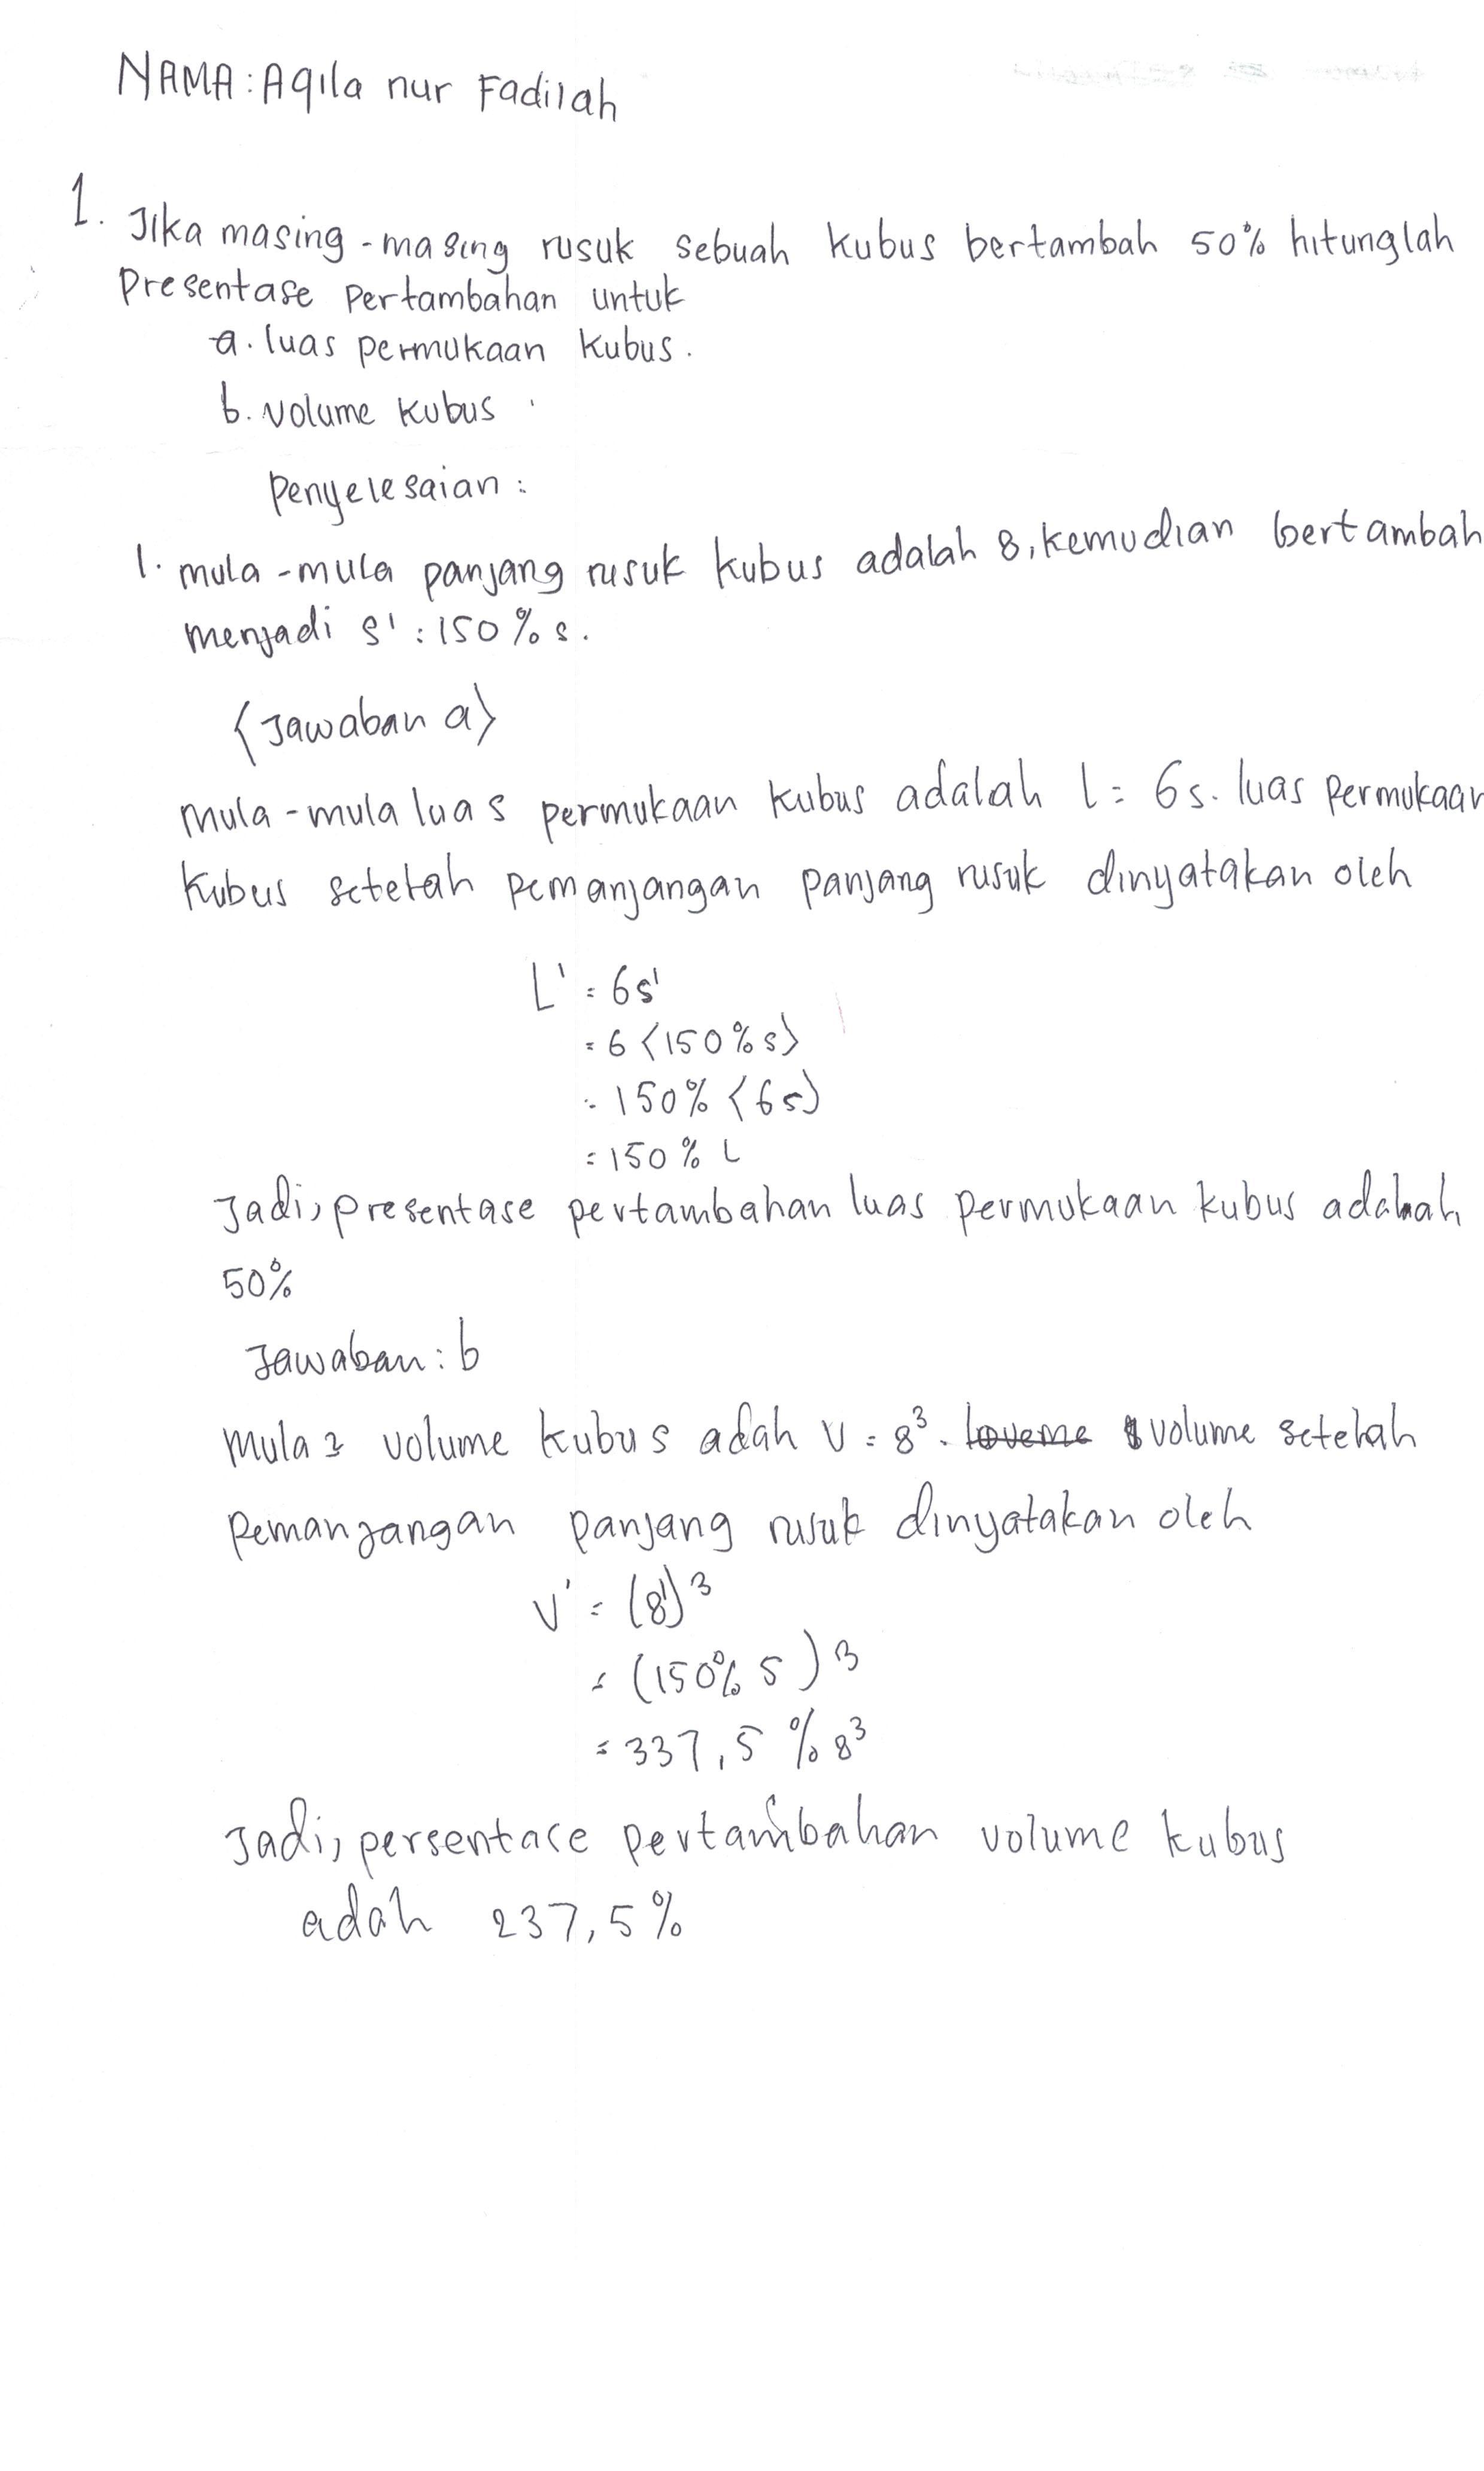 NAMA : Aqila nur Fadilah
1. Jika masing - masing rusuk sebuah kubus bertambah 50% hitunglah
Presentase Pertambahan untuk
a. luas permukaan kubus.
b. volume kubus
Penyelesaian :
1. mula - mula panjang rusuk kubus adalah 8, kemudian bertambah
menjadi s' : 150% s.
(Jawaban a)
mula - mula luas permukaan kubus adalah l = 6s. luas Permukaan
kubus setelah pemanjangan panjang rusuk dinyatakan oleh
L' = 6s'
= 6 (150% s)
= 150% (6s)
= 150% L
Jadi, presentase pertambahan luas permukaan kubus adalah
50%
Jawaban : b
Mula2 volume kubus adah V = 8³. loveme volume setelah
Pemanjangan panjang rusuk dinyatakan oleh
V' = (8')³
= (150% s)³
= 337,5 % 8³
Jadi, persentase pertambahan volume kubus
adah 237,5%